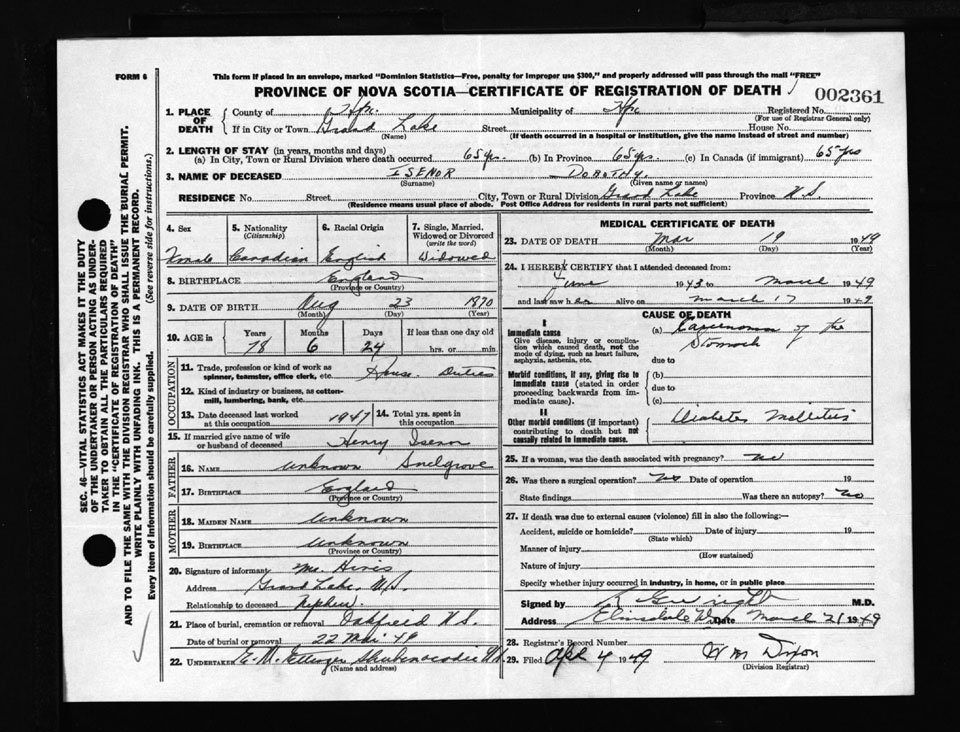 FORM 6
This form if placed in an envelope, marked "Dominion Statistics—Free, penalty for improper use $300," and properly addressed will pass through the mail "FREE"
PROVINCE OF NOVA SCOTIA—CERTIFICATE OF REGISTRATION OF DEATH
002361
1. PLACE OF DEATH County of Hfx. Municipality of Hfx Registered No.
(For use of Registrar General only)
If in City or Town Grand Lake Street House No.
(Name) (If death occurred in a hospital or institution, give the name instead of street and number)
2. LENGTH OF STAY (in years, months and days)
(a) In City, Town or Rural Division where death occurred 65 yrs. (b) In Province 65 yrs. (c) In Canada (if immigrant) 65 yrs
3. NAME OF DECEASED ISENOR DOROTHY.
(Surname) (Given name or names)
RESIDENCE No. Street City, Town or Rural Division Grand Lake Province N.S.
(Residence means usual place of abode. Post Office Address for residents in rural parts not sufficient)
4. Sex 5. Nationality (Citizenship) 6. Racial Origin 7. Single, Married, Widowed or Divorced (write the word)
Female Canadian English Widowed
8. BIRTHPLACE England
(Province or Country)
9. DATE OF BIRTH Aug 23 1870
(Month) (Day) (Year)
10. AGE in Years Months Days If less than one day old
78 6 24 hrs. or min.
OCCUPATION
11. Trade, profession or kind of work as spinner, teamster, office clerk, etc. House Duties
12. Kind of industry or business, as cotton-mill, lumbering, bank, etc.
13. Date deceased last worked at this occupation 1947 14. Total yrs. spent in this occupation
15. If married give name of wife or husband of deceased Henry Isenor
FATHER
16. NAME Unknown Snelgrove
17. BIRTHPLACE England
(Province or Country)
MOTHER
18. MAIDEN NAME Unknown
19. BIRTHPLACE Unknown
(Province or Country)
20. Signature of informant
Address Grand Lake, N.S.
Relationship to deceased Nephew.
21. Place of burial, cremation or removal Oakfield N.S.
Date of burial or removal 22 Mar 49
22. UNDERTAKER E. M. Ettinger Shubenacadie N.S.
(Name and address)
MEDICAL CERTIFICATE OF DEATH
23. DATE OF DEATH Mar 19 1949
(Month) (Day) (Year)
24. I HEREBY CERTIFY that I attended deceased from:
June 1943 to March 1949
and last saw her alive on March 17 1949
CAUSE OF DEATH
I
Immediate cause
Give disease, injury or complication which caused death, not the mode of dying, such as heart failure, asphyxia, asthenia, etc.
(a) Carcinoma of the
Stomach
due to
Morbid conditions, if any, giving rise to immediate cause (stated in order proceeding backwards from immediate cause).
(b)
due to
(c)
II
Other morbid conditions (if important) contributing to death but not causally related to immediate cause.
Diabetes Mellitus
25. If a woman, was the death associated with pregnancy? No
26. Was there a surgical operation? No Date of operation 19
State findings Was there an autopsy? No
27. If death was due to external causes (violence) fill in also the following:—
Accident, suicide or homicide? Date of injury 19
(State which)
Manner of injury
(How sustained)
Nature of injury
Specify whether injury occurred in industry, in home, or in public place
Signed by M.D.
Address Elmsdale Date March 21 1949
28. Registrar's Record Number
29. Filed Apr 4 1949 W M Dixon
(Division Registrar)
SEC. 46—VITAL STATISTICS ACT MAKES IT THE DUTY
OF THE UNDERTAKER OR PERSON ACTING AS UNDER-
TAKER TO OBTAIN ALL THE PARTICULARS REQUIRED
IN THE "CERTIFICATE OF REGISTRATION OF DEATH"
AND TO FILE THE SAME WITH THE DIVISION REGISTRAR WHO SHALL ISSUE THE BURIAL PERMIT.
WRITE PLAINLY WITH UNFADING INK. THIS IS A PERMANENT RECORD.
Every item of information should be carefully supplied. (See reverse side for instructions.)